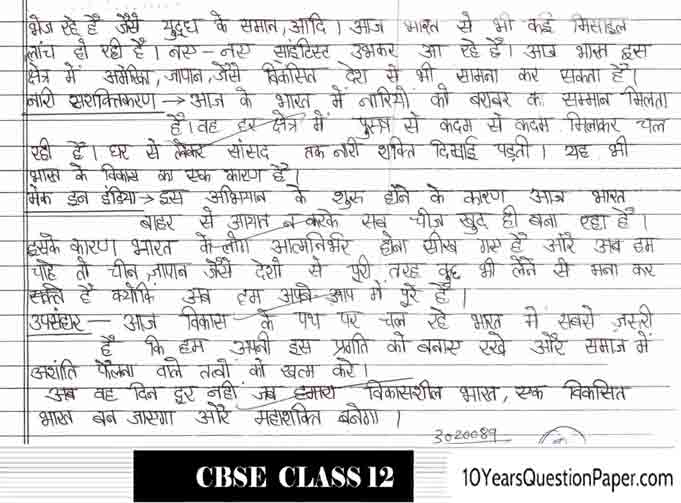 भेज रहे हैं जैसे युद्ध के समान, आदि। आज भारत से भी कई मिसाइल
लांच हो रही हैं। नए-नए सांइटिस्ट उभकर आ रहे हैं। आज भारत इस
क्षेत्र में अमेरिका, जापान, जैसे विकसित देश से भी सामना कर सकता है।
नारी सशक्तिकरण → आज के भारत में नारियों को बराबर का सम्मान मिलता
है। वह हर क्षेत्र में पुरुष से कदम से कदम मिलाकर चल
रही है। घर से लेकर सांसद तक नारी शक्ति दिखाई पड़ती। यह भी
भारत के विकास का एक कारण है।
मेक इन इंडिया → इस अभियान के शुरु होने के कारण आज भारत
बाहर से आयात न करके सब चीज खुद ही बना रहा है।
इसके कारण भारत के लोग आत्मनिर्भर होना सीख गए हैं और अब हम
चाहे तो चीन, जापान जैसे देशों से पूरी तरह कुछ भी लेने से मना कर
सकते हैं क्योंकि अब हम अपने आप में पूरे हैं।
उपसंहार — आज विकास के पथ पर चल रहे भारत में सबसे ज़रूरी
है कि हम अपनी इस प्रगति को बनाए रखे और समाज में
अशांति फैलाना वाले तत्वों को खत्म करे।
अब वह दिन दूर नहीं जब हमारा विकासशील भारत, एक विकसित
भारत बन जाएगा और महाशक्ति बनेगा।
3020089
CBSE CLASS 12
10YearsQuestionPaper.com